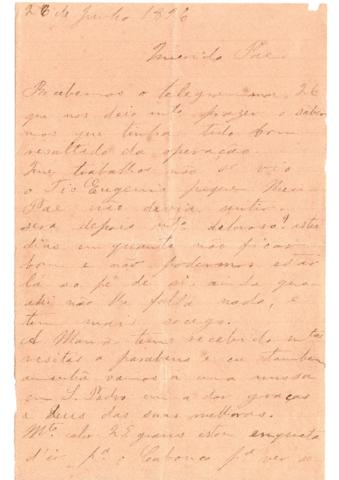 26 de Junho 1896
Querido Pae
Recebemos o telegramma, 26
que nos deio mto prazer o saber
mos que tinha tido bom
resultado da operação.
Que trabalhos não
o Tio Eugenio Meu
Pae não devia sentir.
sera depois mto estes
dias em quanto não ficar
bom e não podermos estar
lá ao pé de si, ainda que
ahi não lhe falta nada, e
tem mais socego.
A Mamã tem recebido mtas
visitas e parabens e eu tambem
amanhã vamos a uma missa
em S. Pedro a dar graças
a Deus das suas melhoras.
Mto calor 25 graus estou
d'ir pa o pa ver se